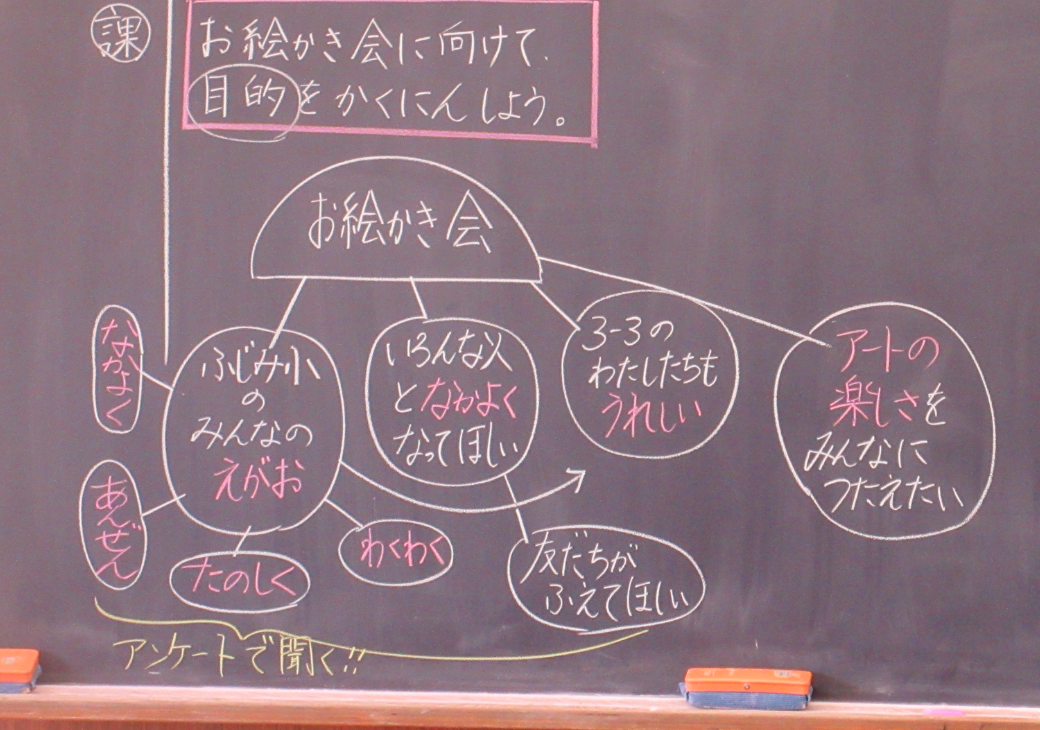 課
お絵かき会に向けて、
目的をかくにんしよう。
お絵かき会
なかよく
ふじみ小
の
みんなの
えがお
いろんな人
となかよく
なってほしい
3-3の
わたしたちも
うれしい
アートの
楽しさを
みんなに
つたえたい
あんぜん
たのしく
わくわく
友だちが
ふえてほしい
アンケートで聞く!!